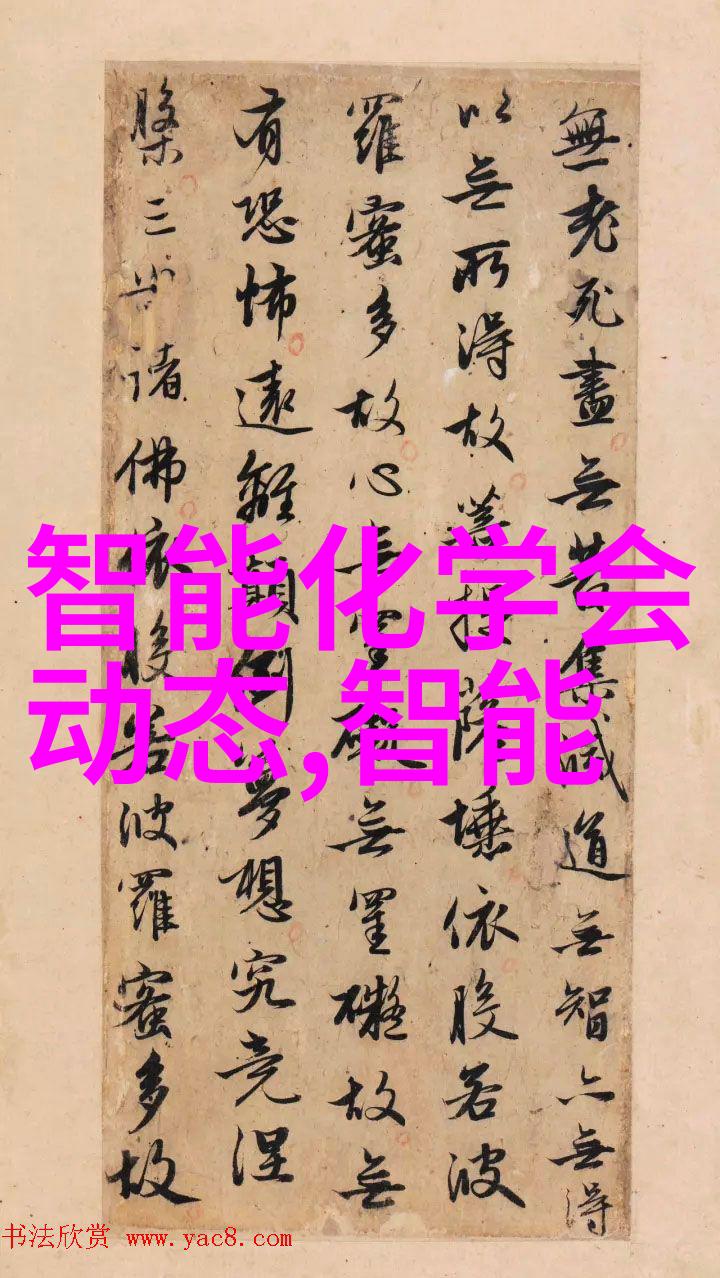 無老死盡无苦集滅道无智亦無得
以无所得故菩提薩埵依般若波
羅蜜多故心无罣礙無罣礙故无
有恐怖遠離顛倒夢想究竟涅
槃三世諸佛依般若波羅蜜多故
智能化学会
动态,智能
书法欣赏 www.yac8.com